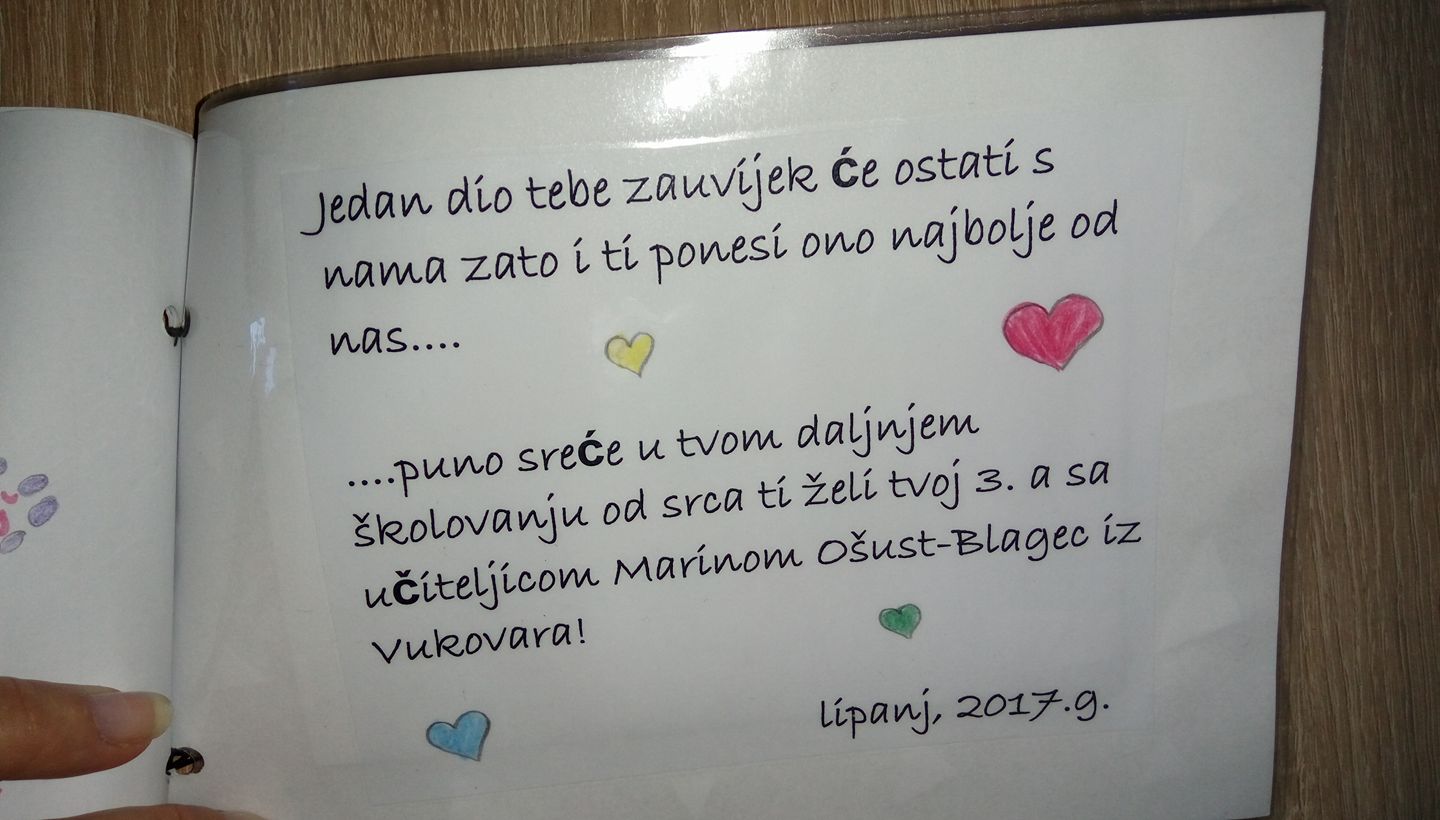 Jedan dio tebe zauvijek će ostati s
nama zato i ti ponesi ono najbolje od
nas....
....puno sreće u tvom daljnjem
školovanju od srca ti želi tvoj 3. a sa
učiteljicom Marinom Ošust-Blagec iz
Vukovara!
lipanj, 2017.g.